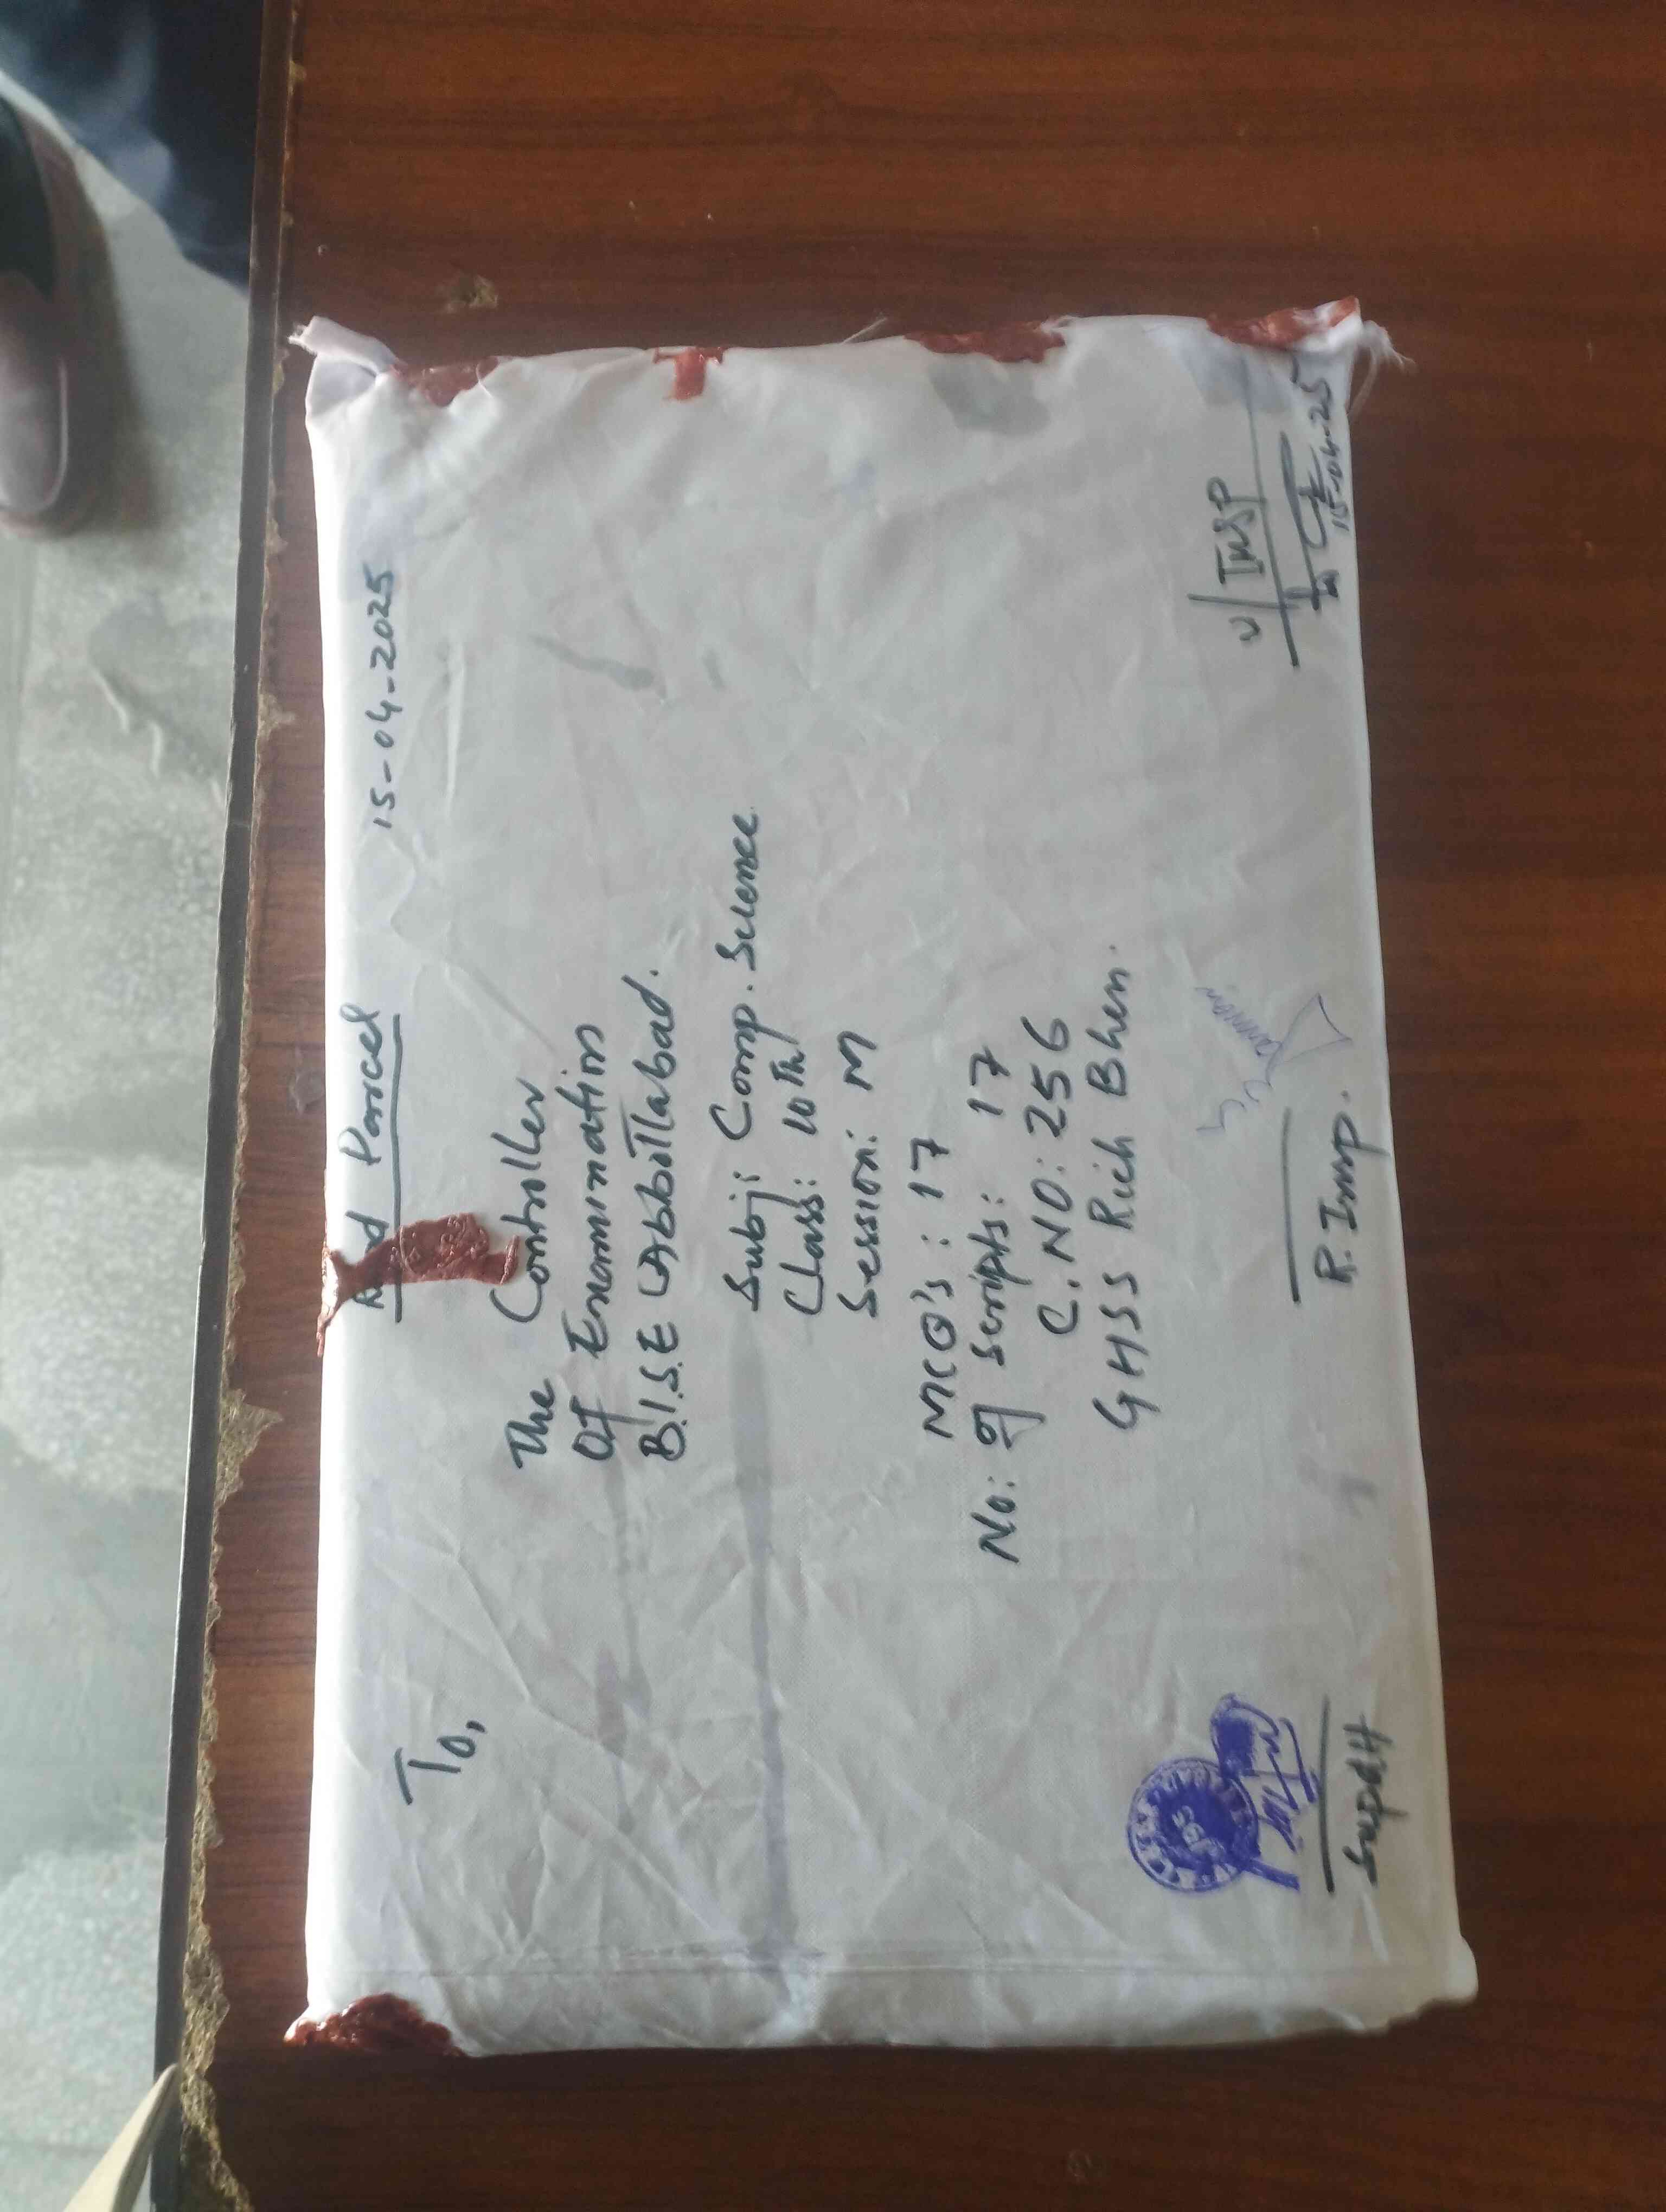 Parcel
15-04-2025
To,
The Controller
Of Examination
B.I.S.E Abbottabad.
Subj: Comp. Science
Class: 10Th
Session: M
MCQ's: 17
No: of Scripts: 17
C.NO: 256
GHSS Rich Bhen.
Supdtt
R. Insp.
V/Insp
15-04-25